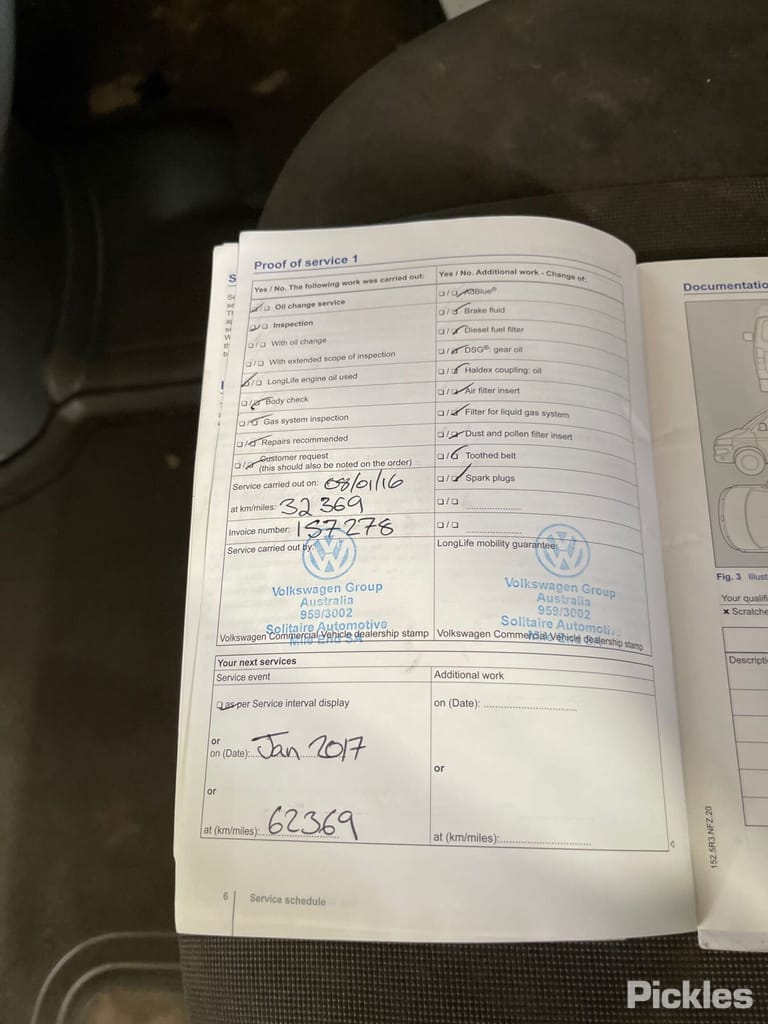 Proof of service 1
Yes / No. The following work was carried out:
❏/❏ Oil change service
❏/❏ Inspection
❏/❏ With oil change
❏/❏ With extended scope of inspection
❏/❏ LongLife engine oil used
❏/❏ Body check
❏/❏ Gas system inspection
❏/❏ Repairs recommended
❏/❏ Customer request
(this should also be noted on the order)
Service carried out on: 08/01/16
at km/miles: 32 369
Invoice number: 157278
Service carried out by:
Volkswagen Group
Australia
959/3002
Solitaire Automotive
Mile End SA
Volkswagen Commercial Vehicle dealership stamp
Yes / No. Additional work - Change of:
❏/❏ Blue®
❏/❏ Brake fluid
❏/❏ Diesel fuel filter
❏/❏ DSG®: gear oil
❏/❏ Haldex coupling: oil
❏/❏ Air filter insert
❏/❏ Filter for liquid gas system
❏/❏ Dust and pollen filter insert
❏/❏ Toothed belt
❏/❏ Spark plugs
❏/❏
❏/❏
LongLife mobility guarantee:
Volkswagen Group
Australia
959/3002
Solitaire Automoti
Volkswagen Commercial Vehicle dealership stamp
Your next services
Service event
❏ as per Service interval display
or
on (Date): Jan 2017
or
at (km/miles): 62369
Additional work
on (Date):
or
at (km/miles):
6 Service schedule
Documentatio
Fig. 3 Illust
Your qualifi
× Scratche
Descripti
152.5R3.NFZ.20
Pickles